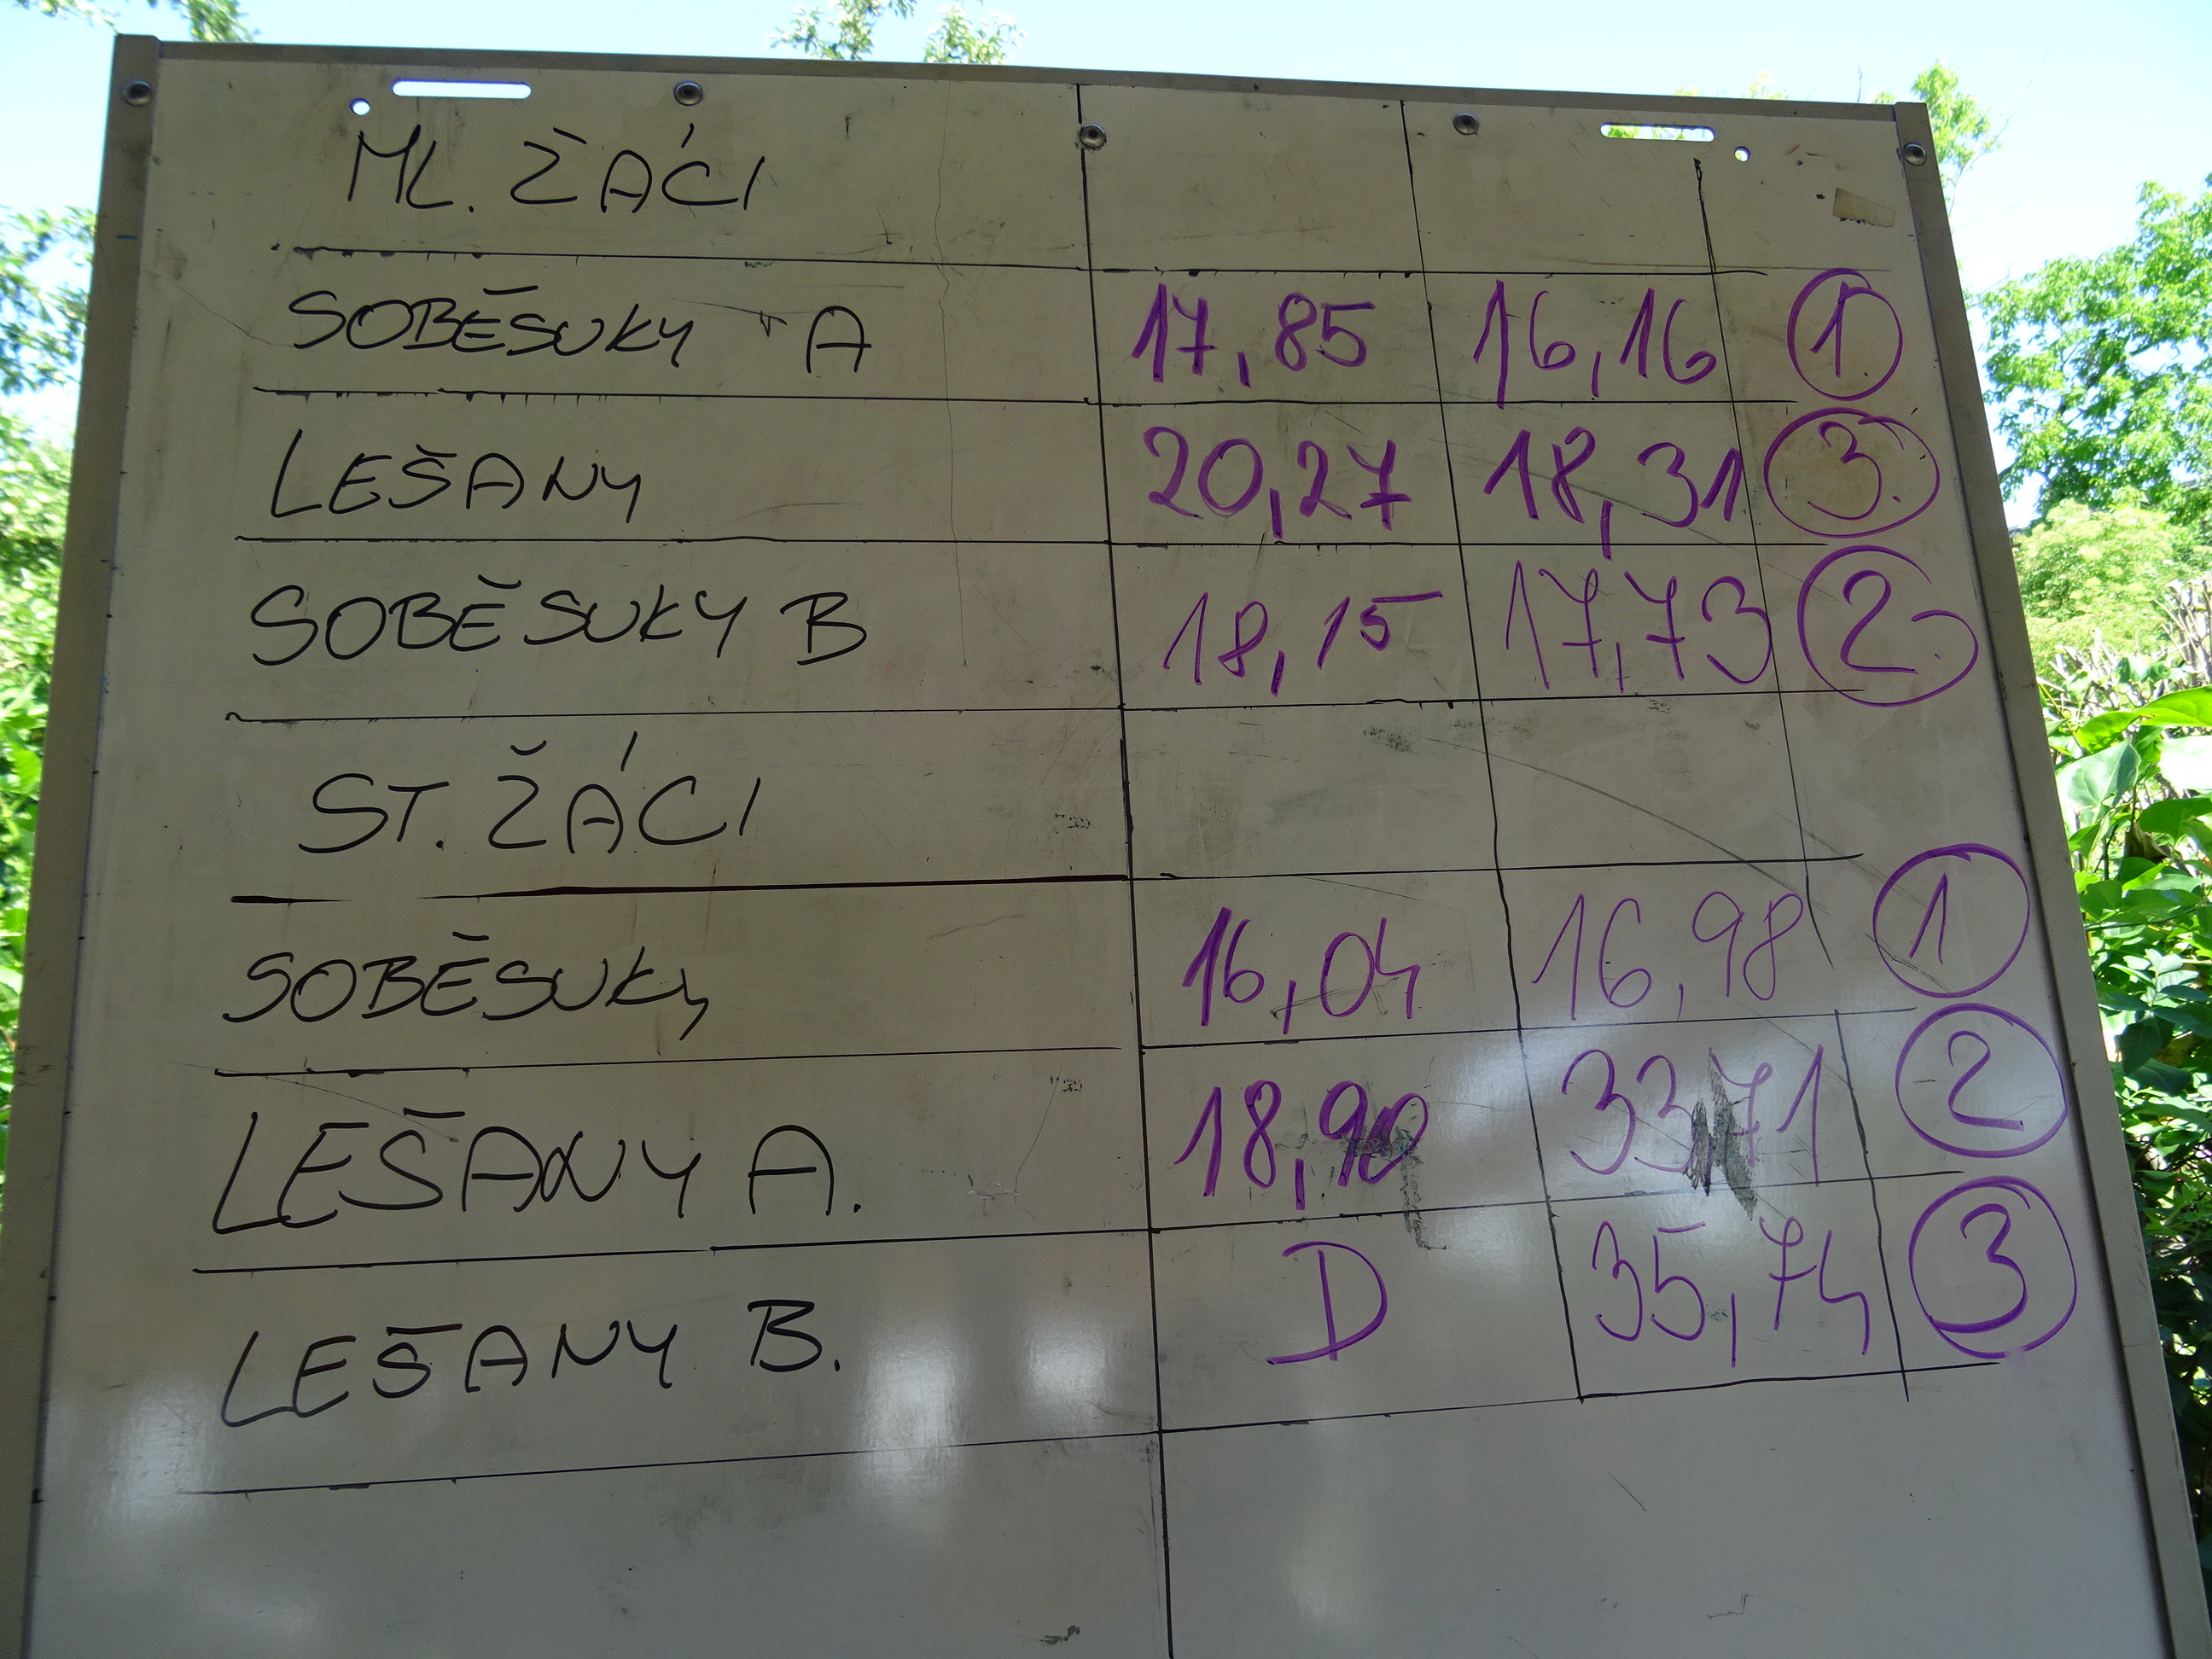 ML. ŽÁCI
SOBĚSUKY A 17,85 16,16 1.
LEŠANY 20,27 18,31 3.
SOBĚSUKY B 18,15 17,73 2.
ST. ŽÁCI
SOBĚSUKY 16,04 16,98 1
LEŠANY A. 18,90 33,71 2
LEŠANY B. D 35,74 3